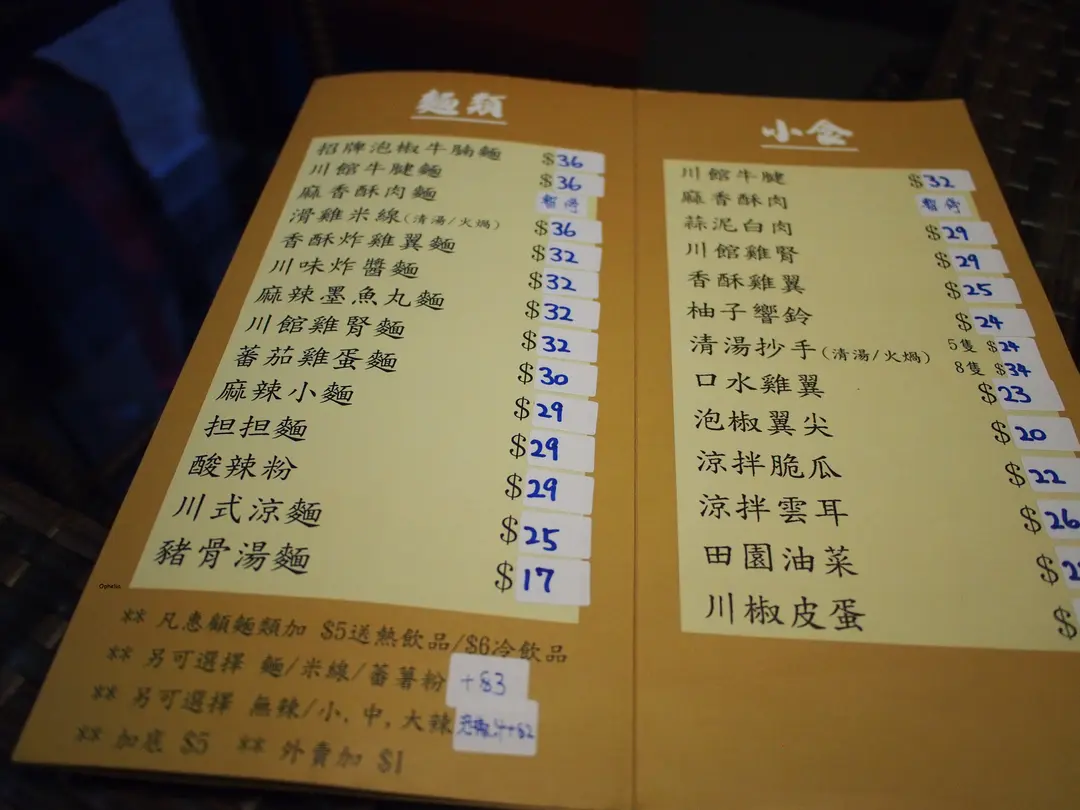 麵類
招牌泡椒牛腩麵 $36
川館牛腱麵 $36
麻香酥肉麵 暫停
滑雞米線(清湯/火焗) $36
香酥炸雞翼麵 $32
川味炸醬麵 $32
麻辣墨魚丸麵 $32
川館雞腎麵 $32
蕃茄雞蛋麵 $30
麻辣小麵 $29
担担麵 $29
酸辣粉 $29
川式涼麵 $25
豬骨湯麵 $17
** 凡惠顧麵類加 $5送熱飲品/$6冷飲品
** 另可選擇 麵/米線/蕃薯粉 +$3
** 另可選擇 無辣/小,中,大辣 +$2
** 加底 $5 ** 外賣加 $1
Ophelia.
小食
川館牛腱 $32
麻香酥肉 暫停
蒜泥白肉 $29
川館雞腎 $29
香酥雞翼 $25
柚子響鈴 $24
清湯抄手(清湯/火焗) 5隻 $24
8隻 $34
口水雞翼 $23
泡椒翼尖 $20
涼拌脆瓜 $22
涼拌雲耳 $26
田園油菜 $2
川椒皮蛋 $